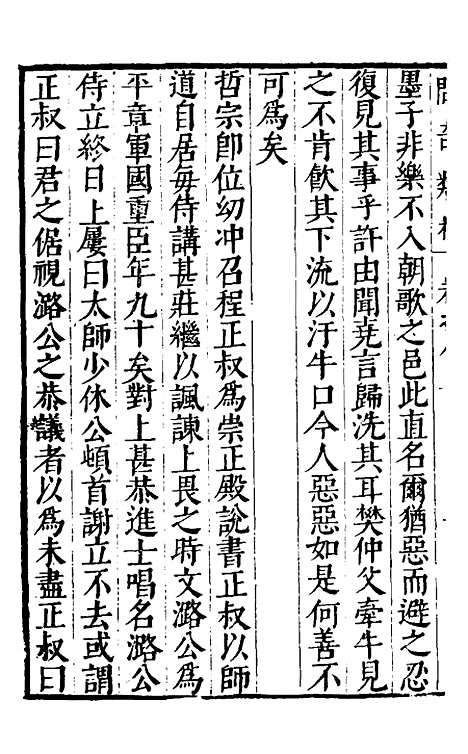 墨子非樂不入朝歌之邑此直名爾猶惡而避之忍
復見其事乎許由聞堯言歸洗其耳樊仲父牽牛見
之不肯飲其下流以汙牛口今人惡惡如是何善不
可爲矣
哲宗卽位幼冲召程正叔爲崇正殿說書正叔以師
道自居每侍講甚莊繼以諷諫上畏之時文潞公爲
平章軍國重臣年九十矣對上甚恭進士唱名潞公
侍立終日上屢曰太師少休公頓首謝立不去或謂
正叔曰君之倨視潞公之恭議者以爲未盡正叔曰